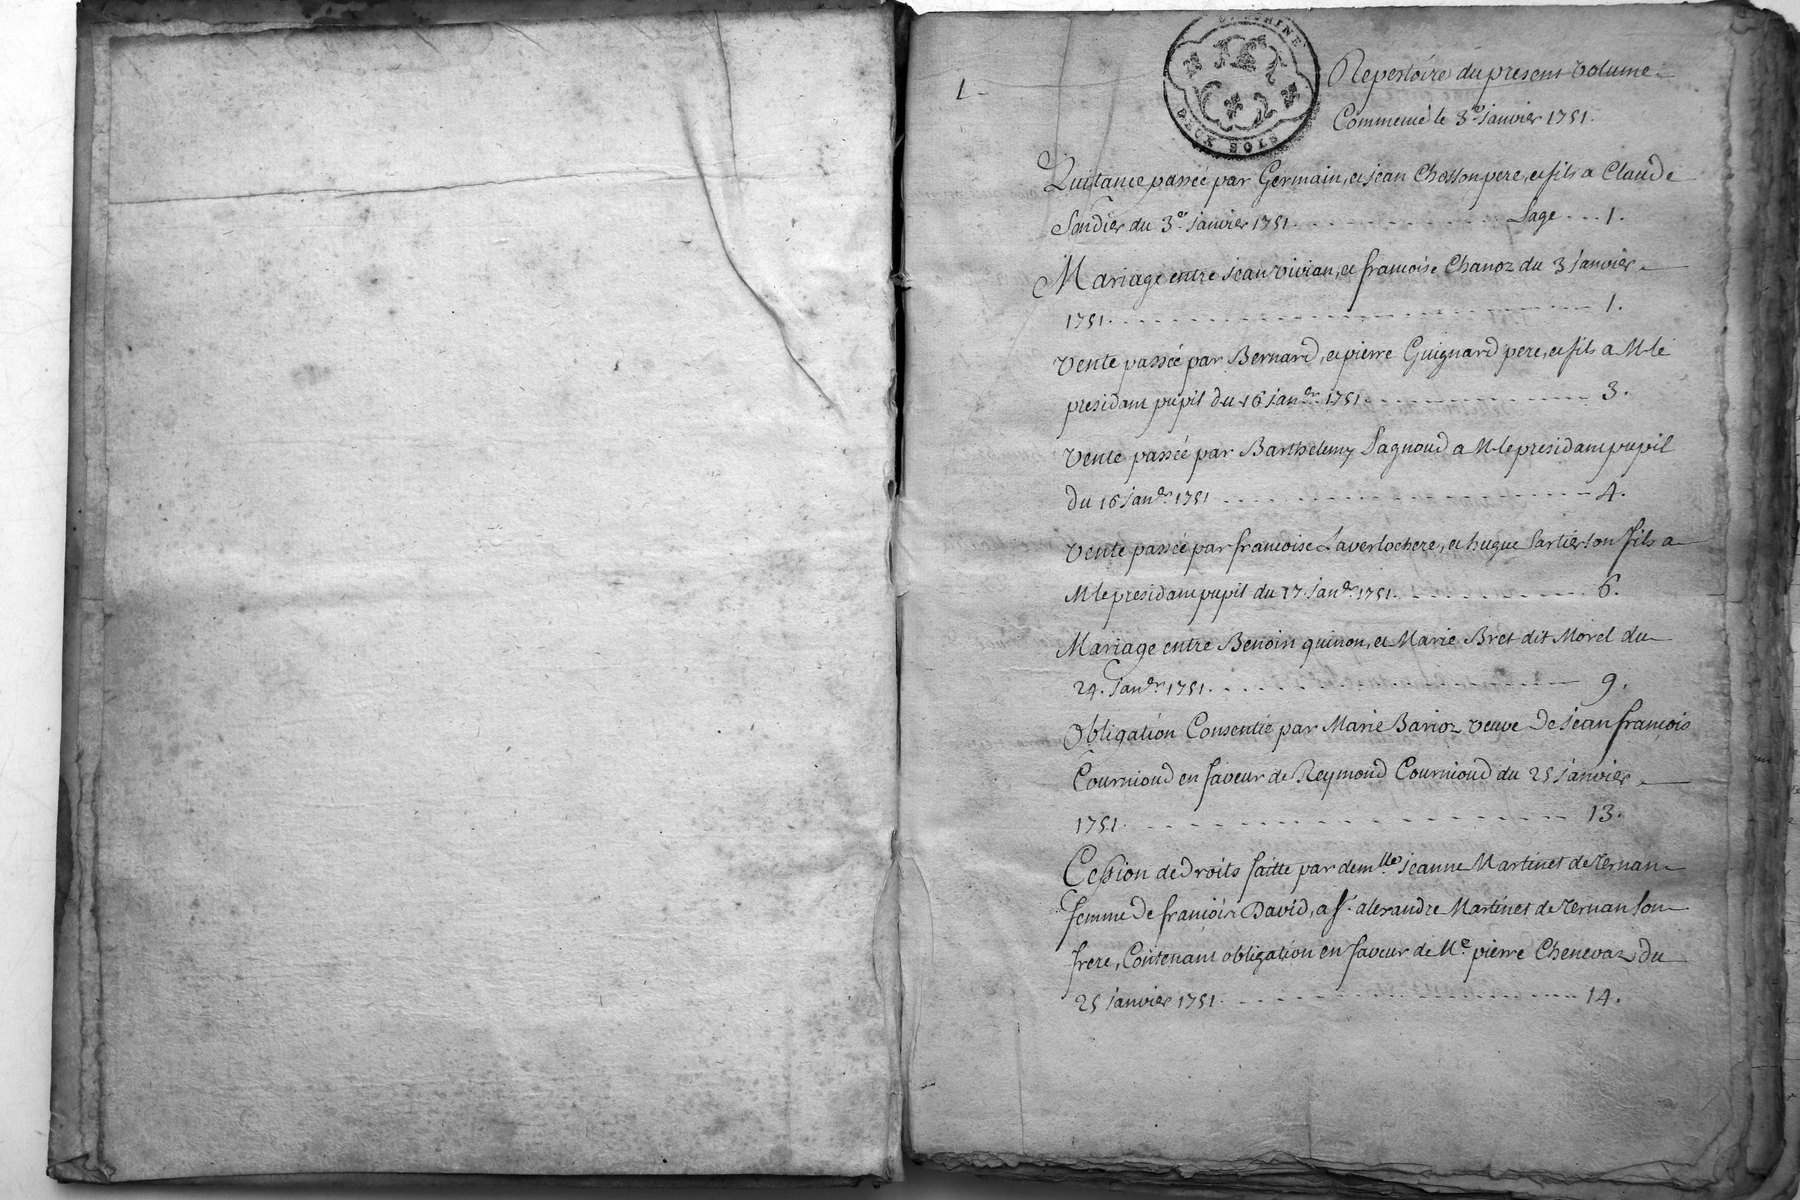 1.
DEUX SOLS
Repertoire du present volume
Commencé le 3e. janvier 1751.
Quitance passée par Germain, et jean Chosson pere, et fils a Claude
Sandier du 3e. janvier 1751. Page 1.
Mariage entre jean vivian, et francoise Chanoz du 3 janvier
1751. 1.
Vente passée par Bernard, et pierre Guignard pere, et fils a M. le
presidant pupil du 16 janer. 1751. 3.
Vente passée par Barthelemy Pagnoud a M. le presidant pupil
du 16 janer. 1751 4.
Vente passée par francoise Laverlochere, et hugue Sartier son fils a
M. le presidant pupil du 17 janer. 1751. 6.
Mariage entre Benoin quinon, et Marie Bret dit Morel du
24. Janer. 1751. 9.
Obligation Consentie par Marie Barioz veuve de jean francois
Cournioud en faveur de Reymond Cournioud du 25 janvier
1751. 13.
Cession de droits faitte par demlle. jeanne Martinet de Ternan
femme de francois David, a S. alexandre Martinet de Ternan son
frere, Contenant obligation en faveur de Me. pierre Chenevaz du
25 janvier 1751. 14.